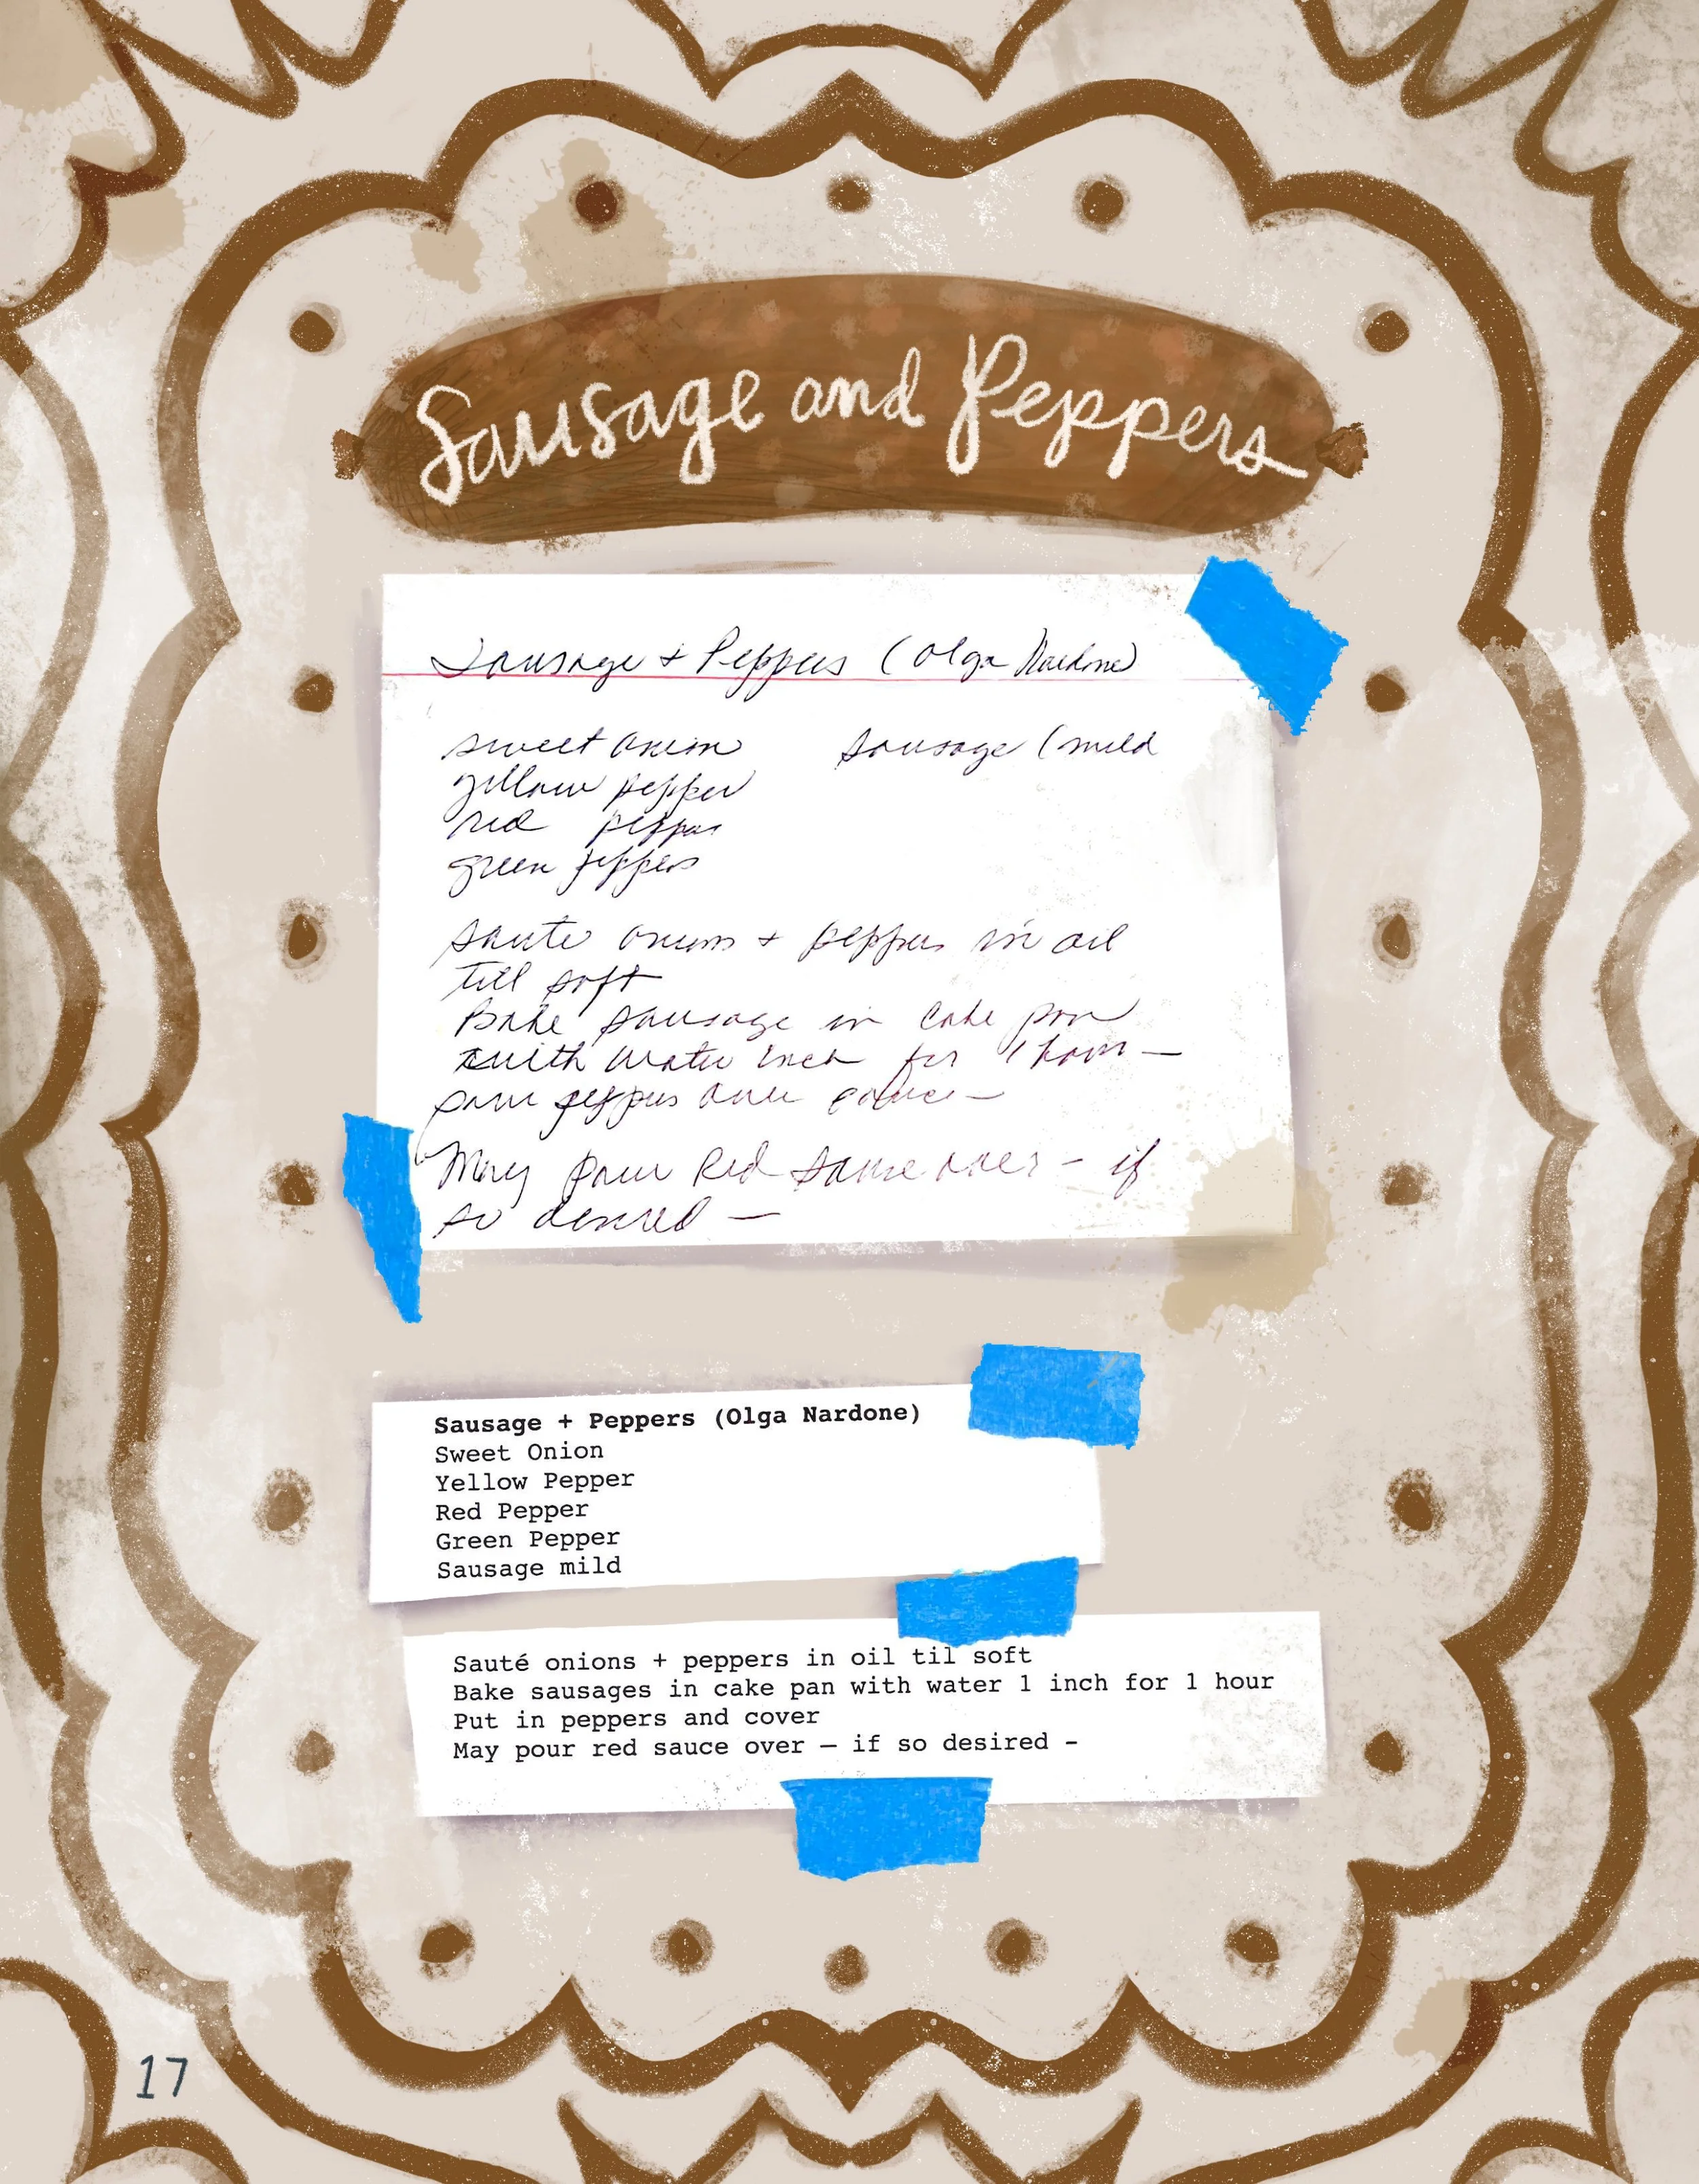 Sausage and Peppers
Sausage + Peppers (Olga Nardone)
sweet onion sausage (mild
yellow pepper
red pepper
green peppers
saute onions + peppers in oil
till soft
Bake sausage in cake pan
with water inch for 1 hour —
pour peppers over —
May pour Red sauce over - if
so desired —
Sausage + Peppers (Olga Nardone)
Sweet Onion
Yellow Pepper
Red Pepper
Green Pepper
Sausage mild
Sauté onions + peppers in oil til soft
Bake sausages in cake pan with water 1 inch for 1 hour
Put in peppers and cover
May pour red sauce over — if so desired -
17